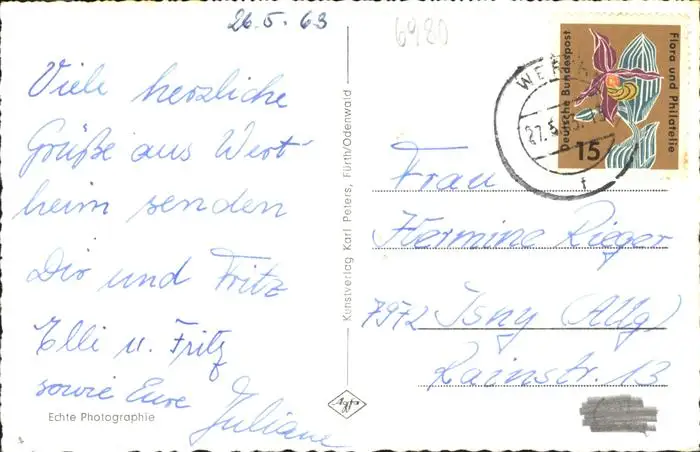 26.5.63
6980
Viele herzliche
Grüße aus Wert-
heim senden
Dir und Fritz
Elli u. Fritz
sowie Eure
Juliane
Echte Photographie
Kunstverlag Karl Peters, Fürth/Odenwald
Agfa
Deutsche Bundespost
Flora und Philatelie
15
WER
27.5.
f
Frau
Hermine Rieger
7972 Isny (Allg)
Rainstr. 13